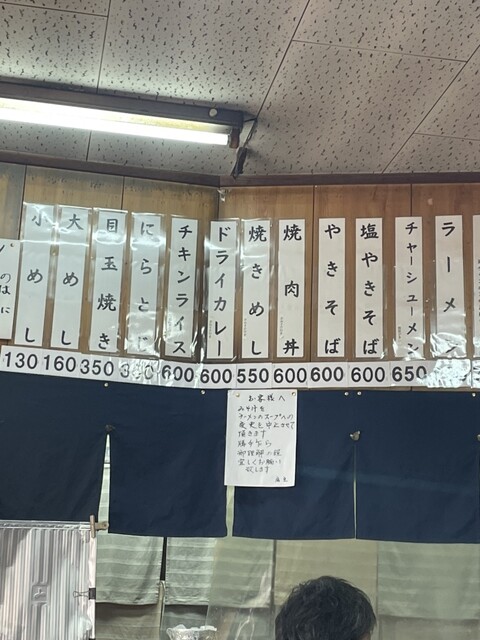 ラーメン
チャーシューメン
塩やきそば
やきそば
焼肉丼
焼きめし
ドライカレー
チキンライス
にらとじ
目玉焼き
大めし
小めし
130
160
350
600
600
550
600
600
600
650
お客様へ
みそ汁を
ラーメンのスープへの
変更を中止させて
頂きます
勝手乍ら
御理解の程
宜しくお願い
致します
店主